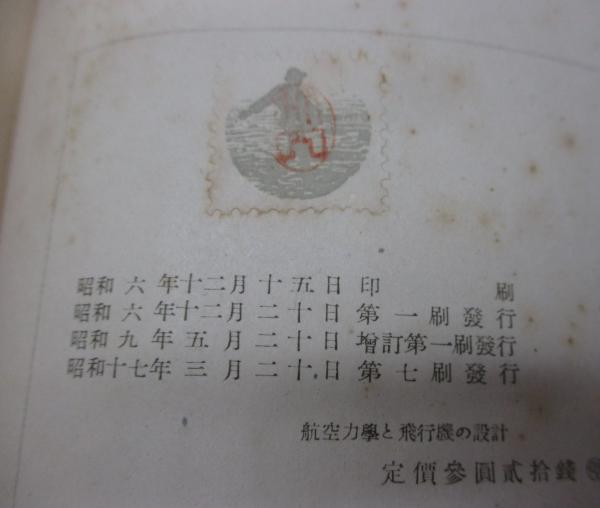 昭和六年十二月十五日印刷
昭和六年十二月二十日第一刷發行
昭和九年五月二十日增訂第一刷發行
昭和十七年三月二十日第七刷發行
航空力學と飛行機の設計
定價參圓貳拾錢